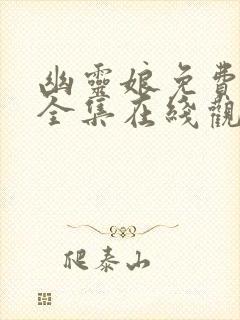 幽靈娘免費
全集在綫觀
爬泰山